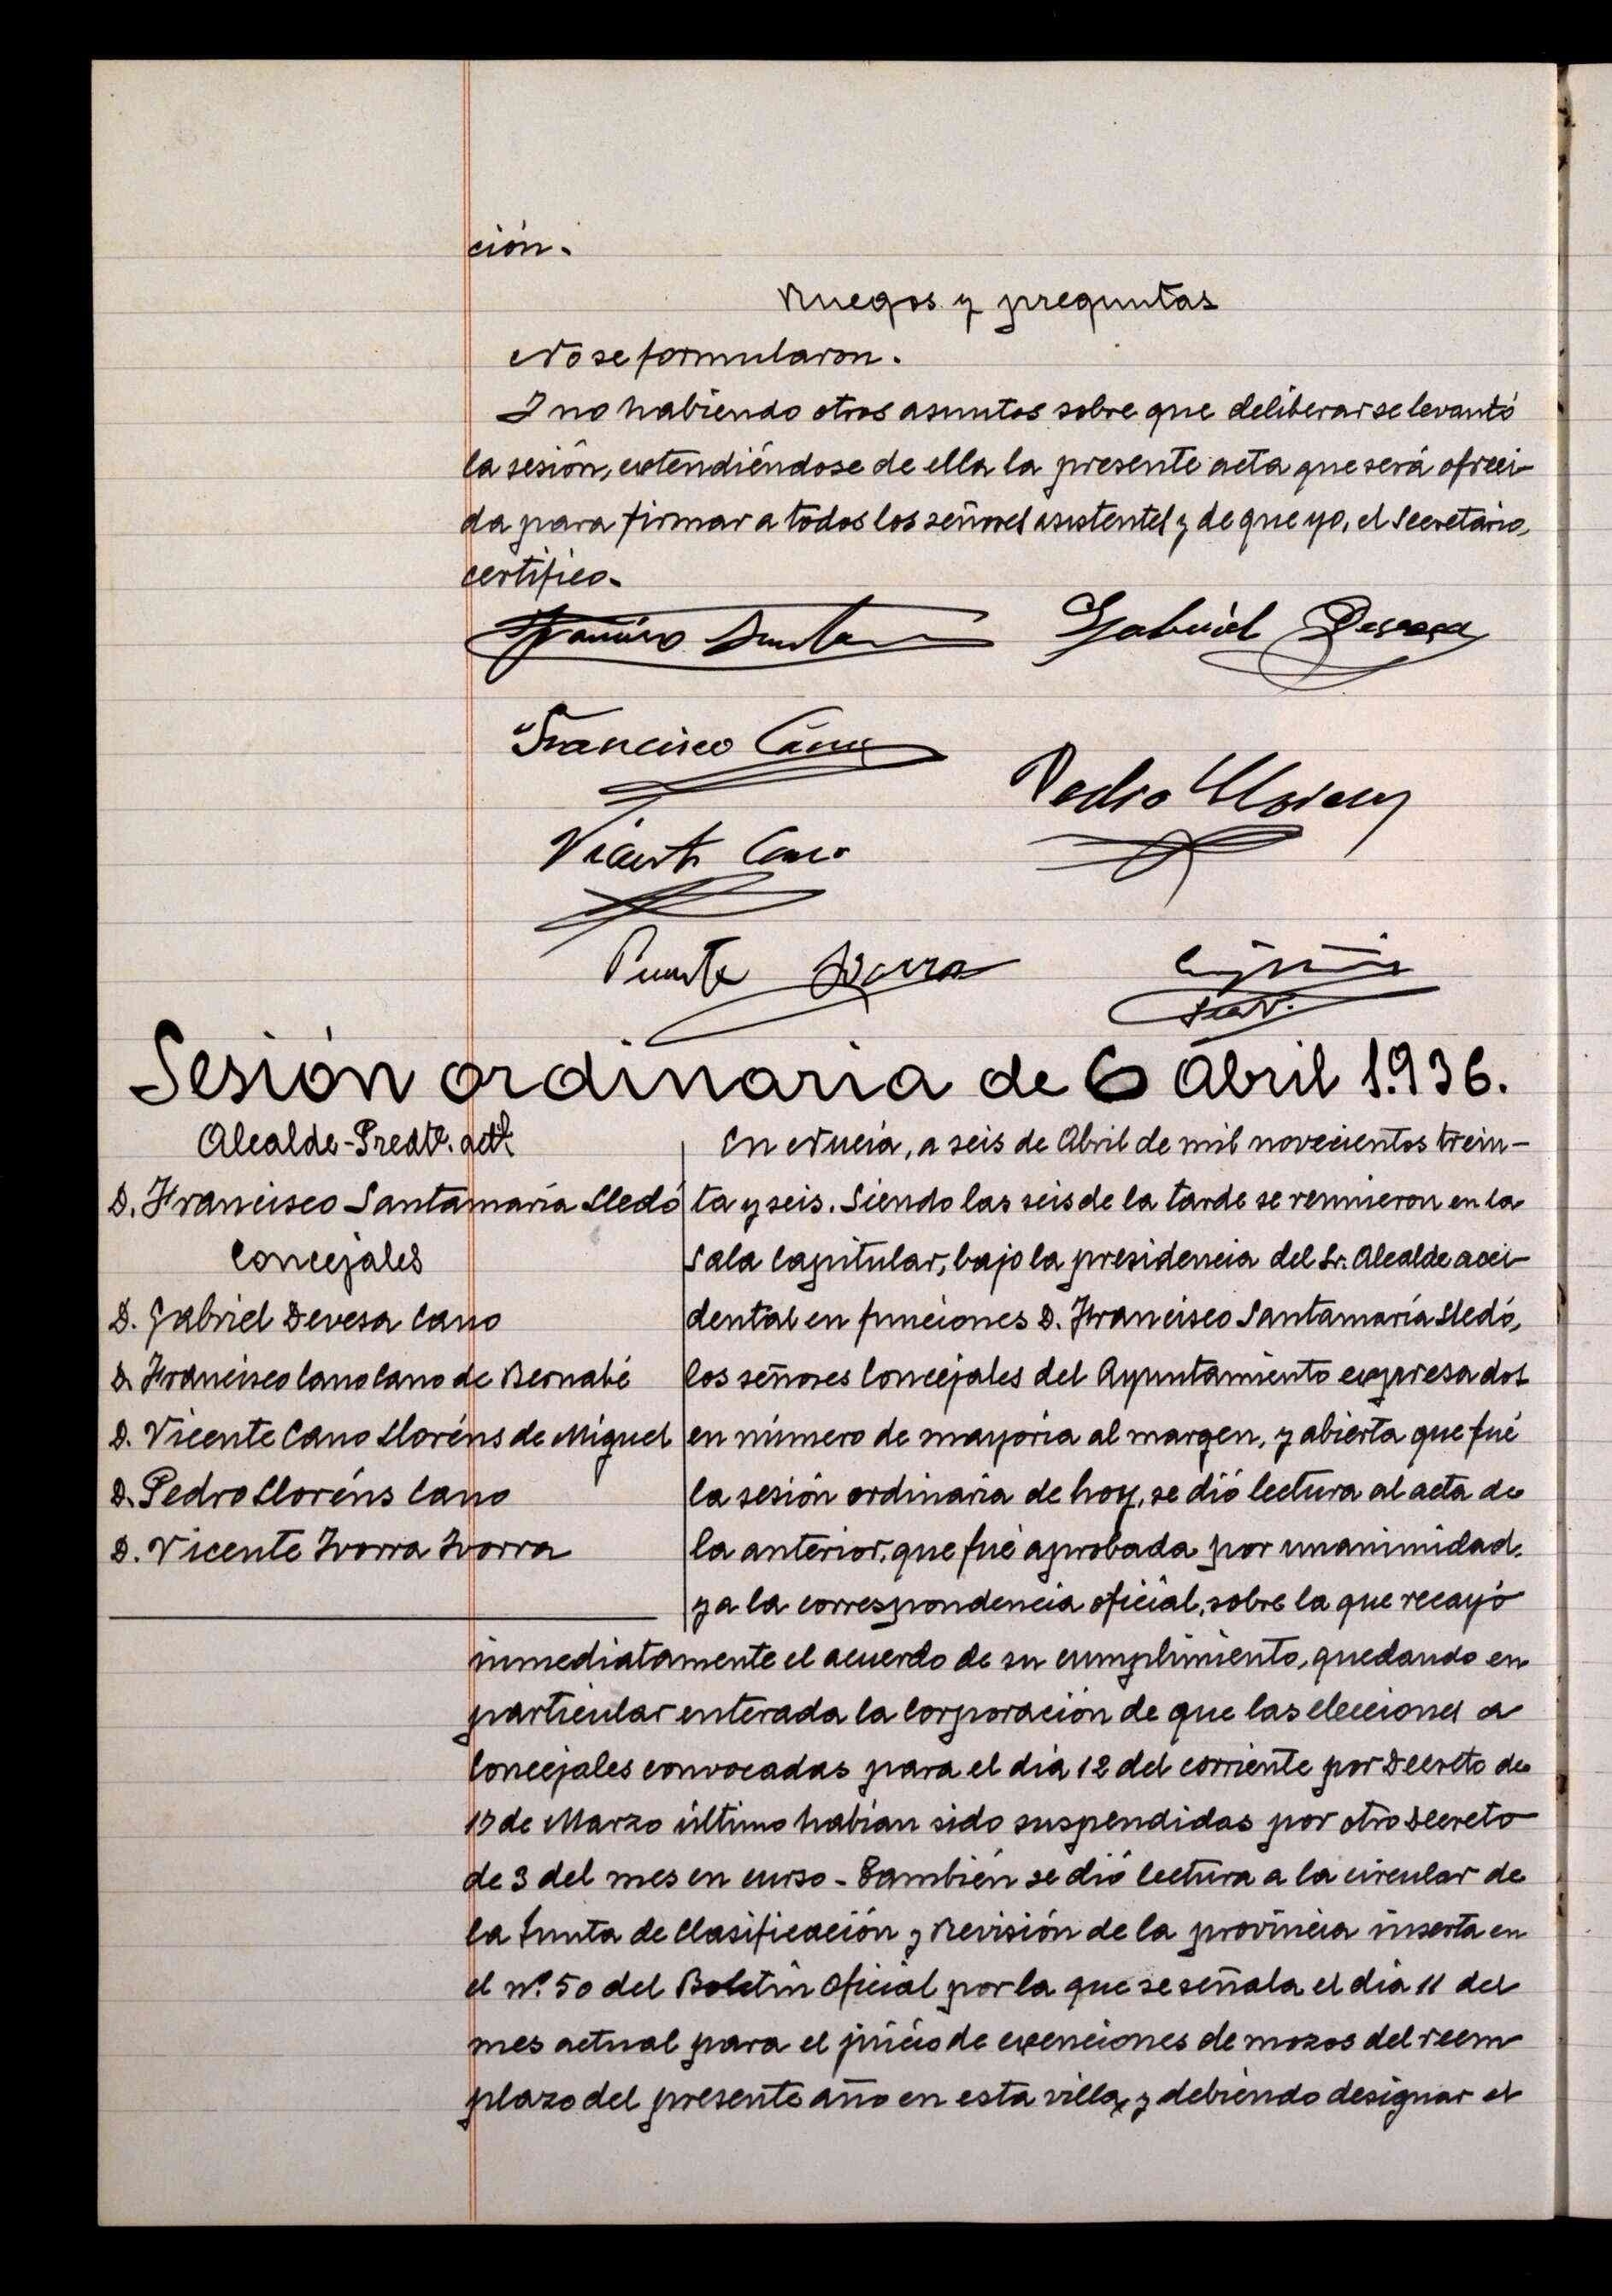 ción.
Ruegos y preguntas
No se formularon.
Y no habiendo otros asuntos sobre que deliberar se levantó
la sesión, extendiéndose de ella la presente acta que será ofreci-
da para firmar a todos los señores asistentes y de que yo, el Secretario,
certifico.
Gabriel Devesa
Francisco Cano
Pedro Llorens
Vicente Cano
Sesión ordinaria de 6 Abril 1.936.
Alcalde-Predte. actl.
D. Francisco Santamaría Lledó
Concejales
D. Gabriel Devesa Cano
D. Francisco Cano Cano de Bernabé
D. Vicente Cano Lloréns de Miguel
D. Pedro Lloréns Cano
D. Vicente Ivorra Ivorra
En Nucia, a seis de Abril de mil novecientos trein-
ta y seis. Siendo las seis de la tarde se reunieron en la
Sala Capitular, bajo la presidencia del Sr. Alcalde acci-
dental en funciones D. Francisco Santamaría Lledó,
los señores Concejales del Ayuntamiento expresados
en número de mayoría al margen, y abierta que fué
la sesión ordinaria de hoy, se dió lectura al acta de
la anterior, que fué aprobada por unanimidad,
y a la correspondencia oficial, sobre la que recayó
inmediatamente el acuerdo de su cumplimiento, quedando en
particular enterada la Corporación de que las elecciones a
Concejales convocadas para el día 12 del corriente por Decreto de
de Marzo último habían sido suspendidas por otro Decreto
de 3 del mes en curso - También se dió lectura a la circular de
la Junta de Clasificación y Revisión de la provincia inserta en
el nº. 50 del Boletín Oficial por la que se señala el día 11 del
mes actual para el juicio de exenciones de mozos del reem
plazo del presente año en esta villa, y debiendo designar el